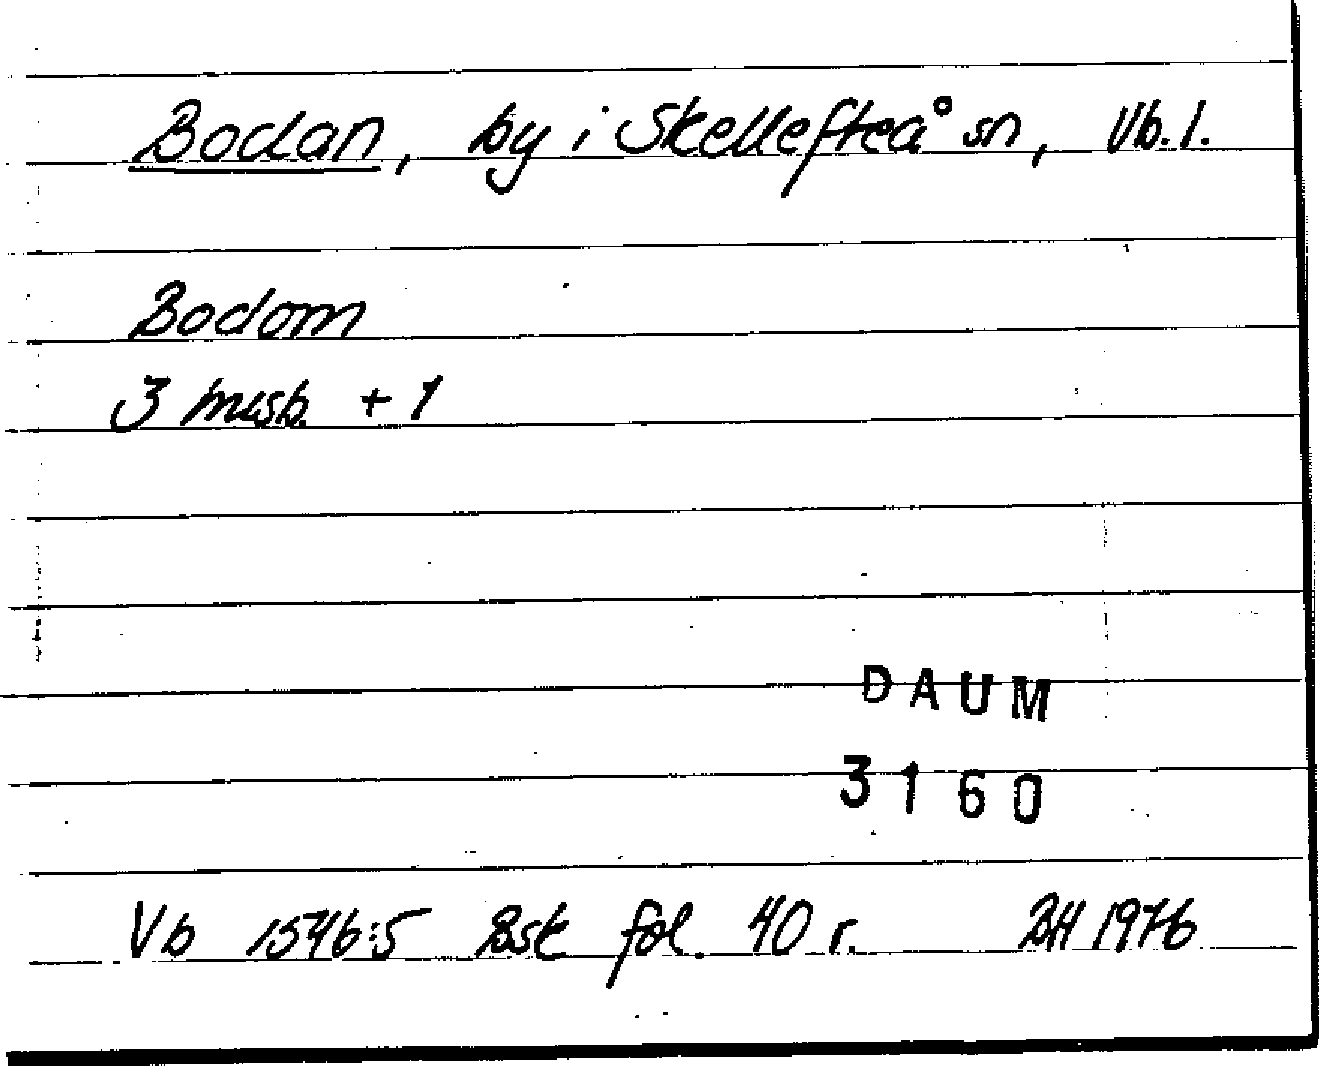 Bodan, by i Skellefteå sn, Vb. l.
Bodom
3 mısb. + 1
DAUM
3160
Vb 1546:5 Bsk fol. 40 r. BH 1976